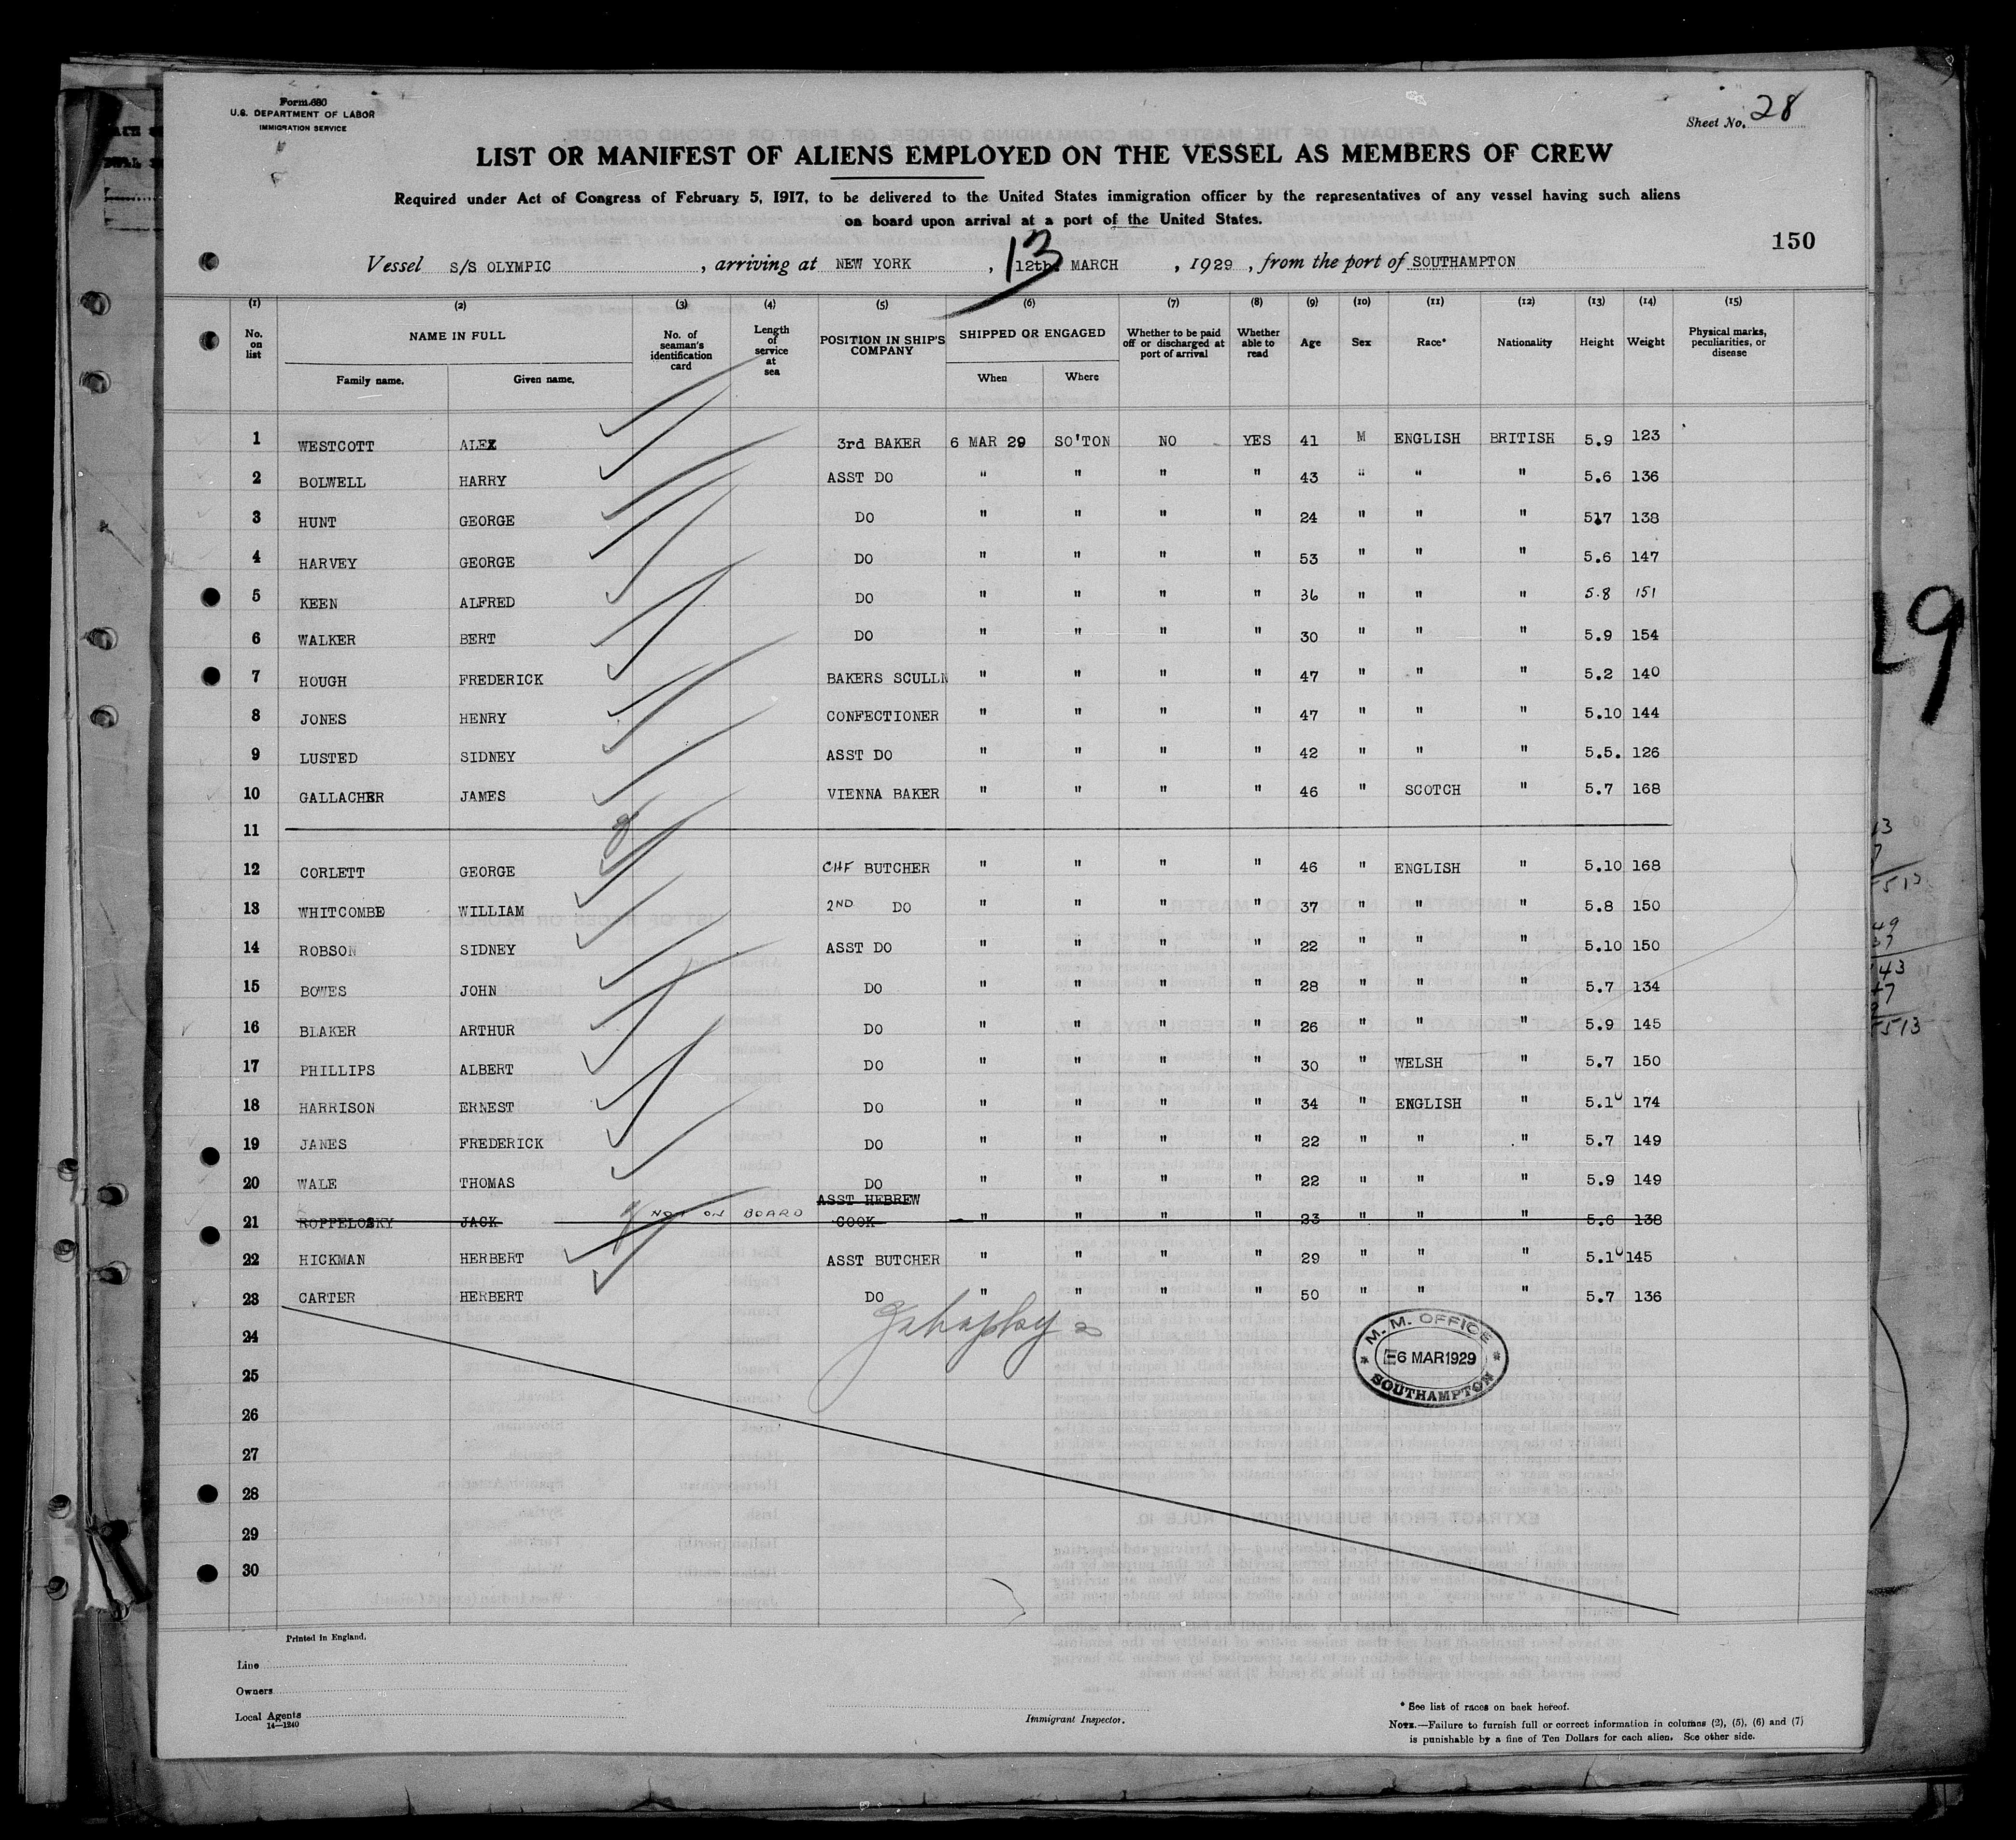 Form 680
U.S. DEPARTMENT OF LABOR
IMMIGRATION SERVICE
Sheet No. 28
LIST OR MANIFEST OF ALIENS EMPLOYED ON THE VESSEL AS MEMBERS OF CREW
Required under Act of Congress of February 5, 1917, to be delivered to the United States immigration officer by the representatives of any vessel having such aliens
on board upon arrival at a port of the United States.
150
13
Vessel S/S OLYMPIC, arriving at NEW YORK, 12th MARCH, 1929, from the port of SOUTHAMPTON
(1) (2) (3) (4) (5) (6) (7) (8) (9) (10) (11) (12) (13) (14) (15)
No. on list NAME IN FULL Family name. Given name. No. of seaman's identification card Length of service at sea POSITION IN SHIP'S COMPANY SHIPPED OR ENGAGED When Where Whether to be paid off or discharged at port of arrival Whether able to read Age Sex Race* Nationality Height Weight Physical marks, peculiarities, or disease
1 WESTCOTT ALEX 3rd BAKER 6 MAR 29 SO'TON NO YES 41 M ENGLISH BRITISH 5.9 123
2 BOLWELL HARRY ASST DO " " " " 43 " " " 5.6 136
3 HUNT GEORGE DO " " " " 24 " " " 5.7 138
4 HARVEY GEORGE DO " " " " 53 " " " 5.6 147
5 KEEN ALFRED DO " " " " 36 " " " 5.8 151
6 WALKER BERT DO " " " " 30 " " " 5.9 154
7 HOUGH FREDERICK BAKERS SCULLN " " " " 47 " " " 5.2 140
8 JONES HENRY CONFECTIONER " " " " 47 " " " 5.10 144
9 LUSTED SIDNEY ASST DO " " " " 42 " " " 5.5. 126
10 GALLACHER JAMES VIENNA BAKER " " " " 46 " SCOTCH " 5.7 168
11
12 CORLETT GEORGE CHF BUTCHER " " " " 46 " ENGLISH " 5.10 168
13 WHITCOMBE WILLIAM 2ND DO " " " " 37 " " " 5.8 150
14 ROBSON SIDNEY ASST DO " " " " 22 " " " 5.10 150
15 BOWES JOHN DO " " " " 28 " " " 5.7 134
16 BLAKER ARTHUR DO " " " " 26 " " " 5.9 145
17 PHILLIPS ALBERT DO " " " " 30 " WELSH " 5.7 150
18 HARRISON ERNEST DO " " " " 34 " ENGLISH " 5.10 174
19 JANES FREDERICK DO " " " " 22 " " " 5.7 149
20 WALE THOMAS DO " " " " 22 " " " 5.9 149
21 JACK NOT ON BOARD ASST HEBREW COOK " " " " 23 " " " 5.6 138
22 HICKMAN HERBERT ASST BUTCHER " " " " 29 " " " 5.10 145
23 CARTER HERBERT DO " " " " 50 " " " 5.7 136
24
25
26
27
28
29
30
M.M. OFFICE
6 MAR 1929
SOUTHAMPTON
Printed in England.
Line
Owners
Local Agents
14—1240
Immigrant Inspector.
* See list of races on back hereof.
NOTE.—Failure to furnish full or correct information in columns (2), (5), (6) and (7)
is punishable by a fine of Ten Dollars for each alien. See other side.